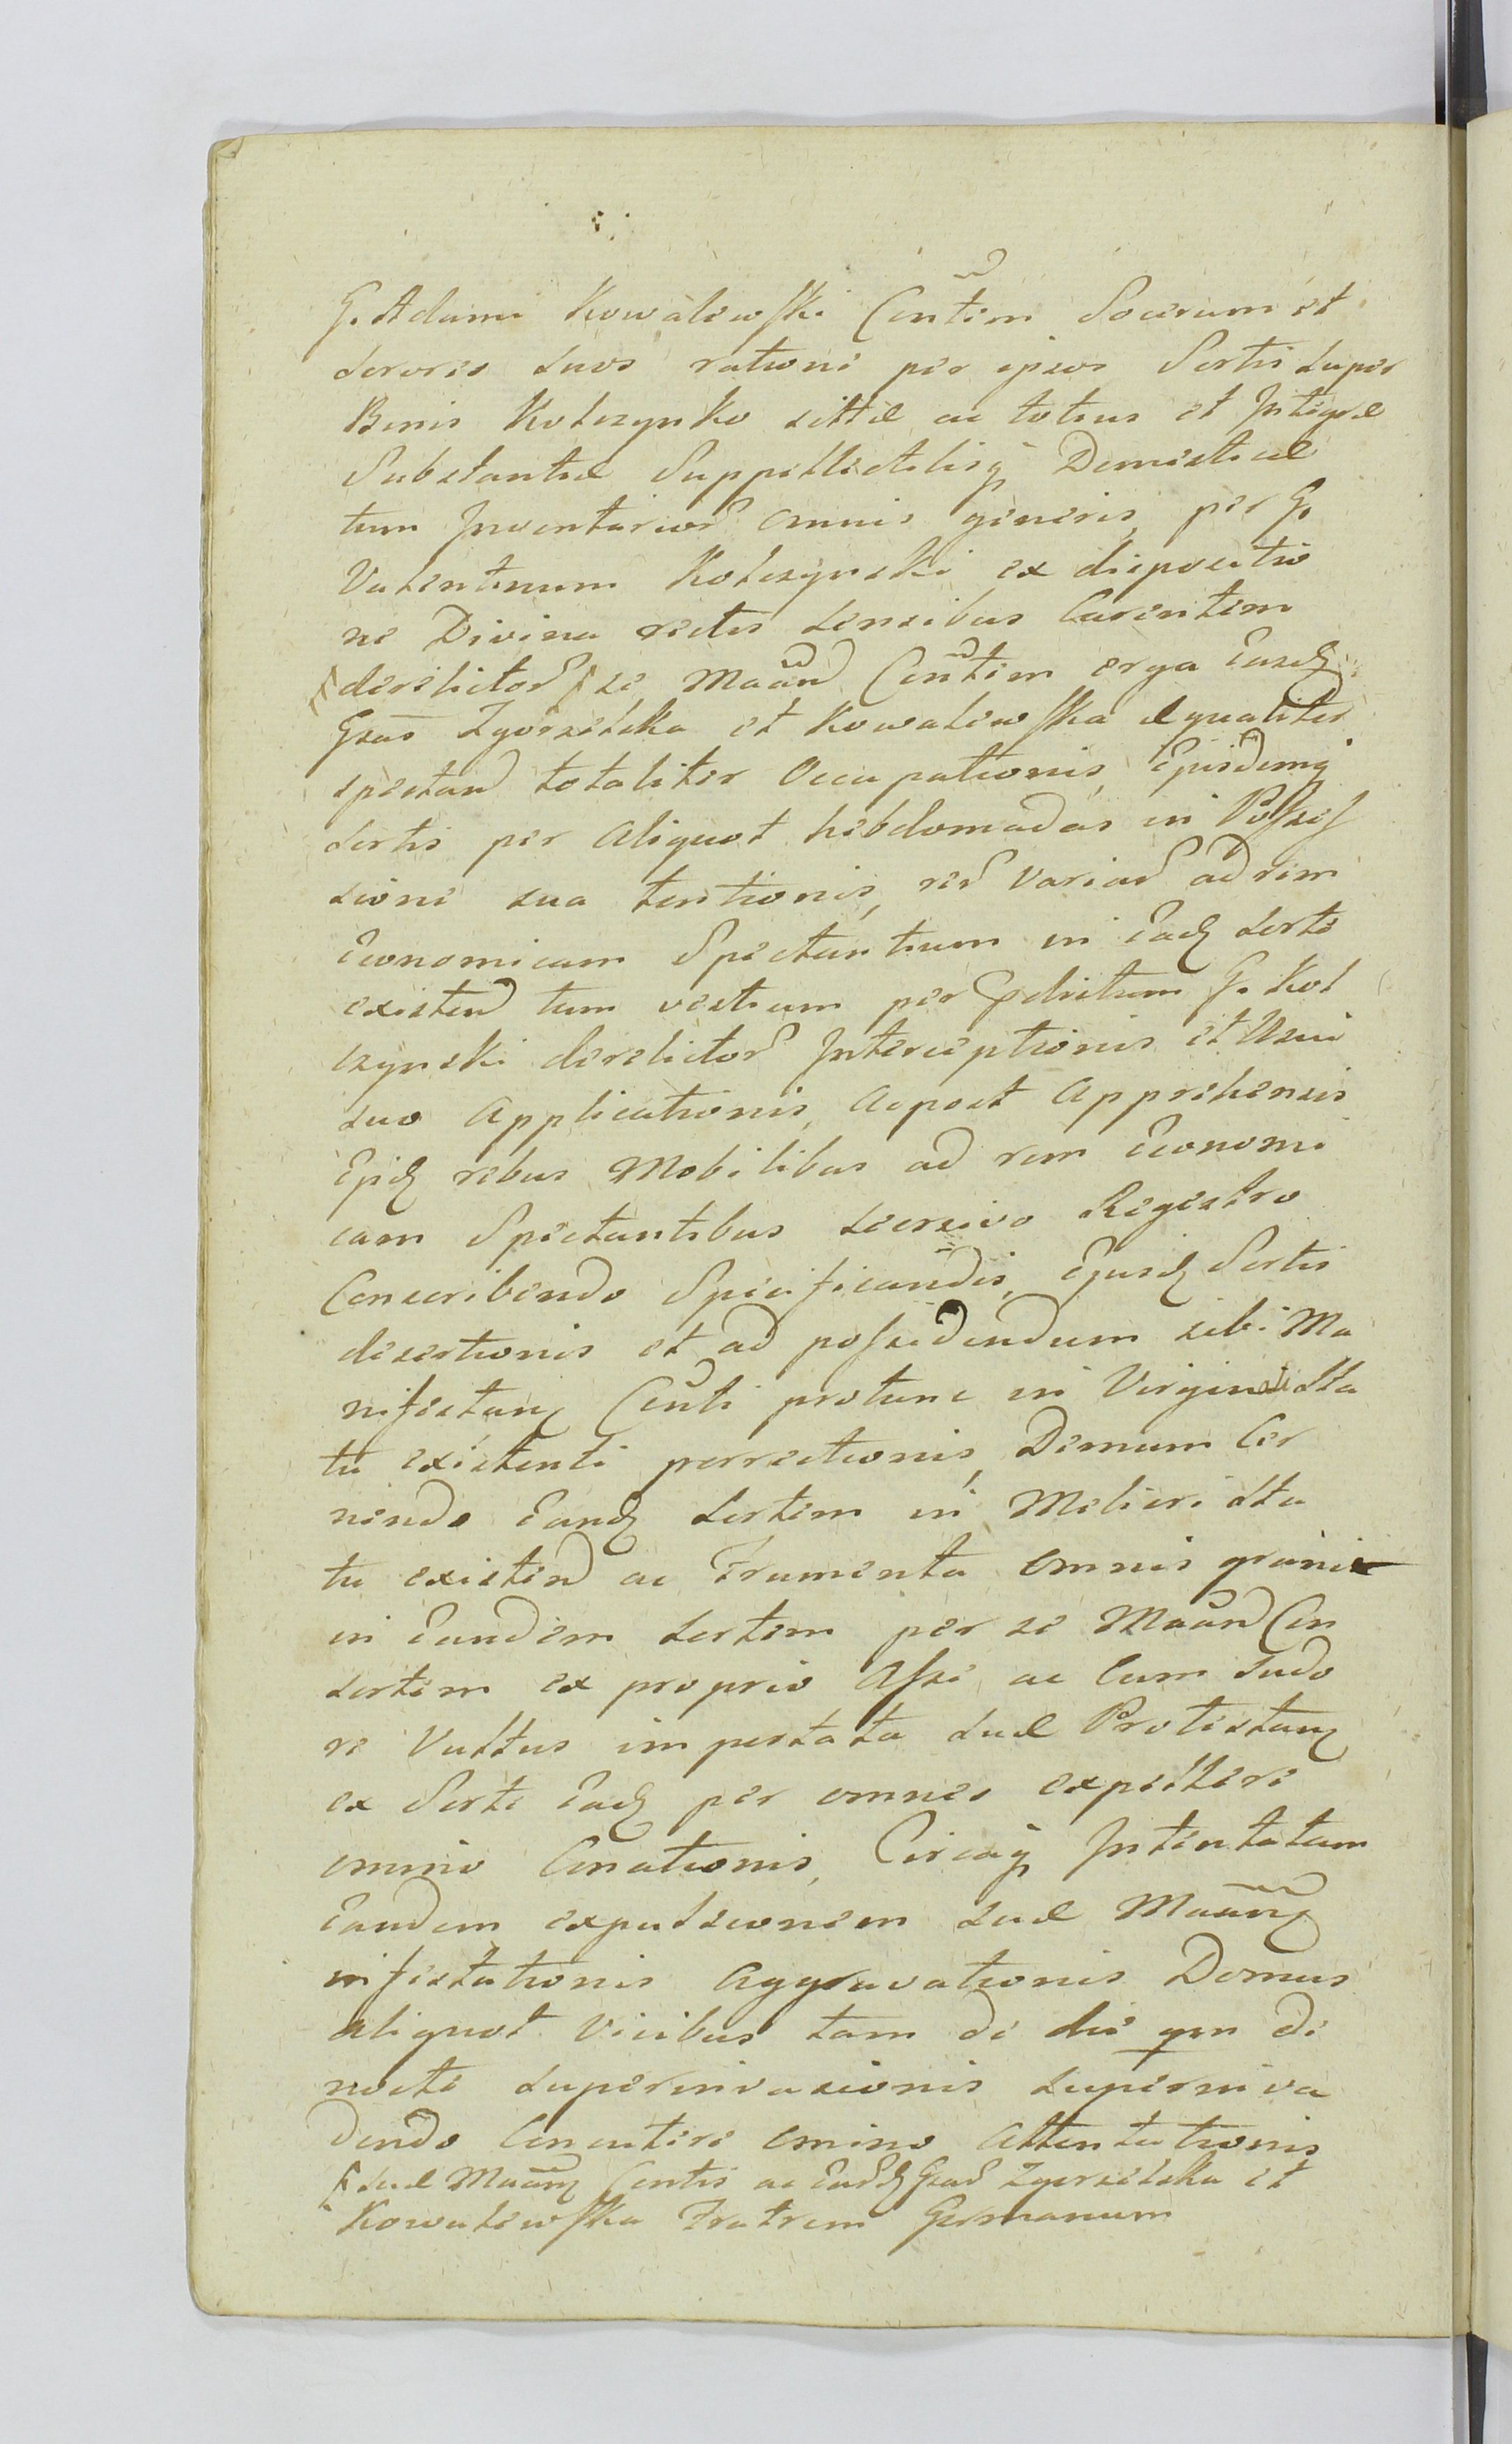 G. Adami Kowalewski Contem Socerum et
Sorores suos rationi per ipsos Sortis super
Bonis Kolczynko sittæ ac totius et Integræ
Substantiæ Suppellectilisq Domesticæ
tum Inventarior omnis generis, per G.
Valentinum Kolczynski ex dispositio
ne Divina rectis sensibus Carentem
derelictor se Maand Contem erga Easdz
Gsas Zgorzelska et Kowalewska æqualiter
spectand totaliter Occupationis, Ejusdemq
Sortis per Aliquot hebdomadas in Possess
sione sua tentionis, rer Variar ad rem
Economicam Spectantium in Eadz Sorte
existend tum vestium per G. Kol
czynski derelictor Interceptionis et Usui
suo Applicationis, Acpost Apprehensis
Ejdz rebus Mobilibus ad rem Economi
cam Spectantibus seorsivo Regestro
Conscribendo Specificandis, Ejusdz Sortis
desertionis et ad possidendum sibi Ma
nifestanz Conti protunc in Virginei Sta
tu existenti porrectionis, Demum Cer
nendo Eandz Sortem in Meliori Sta
tu existend ac Frumenta Omnis grani
in Eandem Sortem per se Maand Con
sortem ex proprio Asse ac Cum Sudo
re Vultus importata suæ Protestanz
ex Sorte Eadz per omnes expellere
omnio Conationis, Circaq Intentatam
Eandem expulsionem suæ Maanz
infestationis Aggravationis Domus
aliquot Vicibus tam de die qm de
nocte superinvasionis superinva
dendo Concutere omino Attentationis
suæ Maanz Contis ac Eardz Gsar Zgorzelska et
Kowalewska Fratrem Germanum